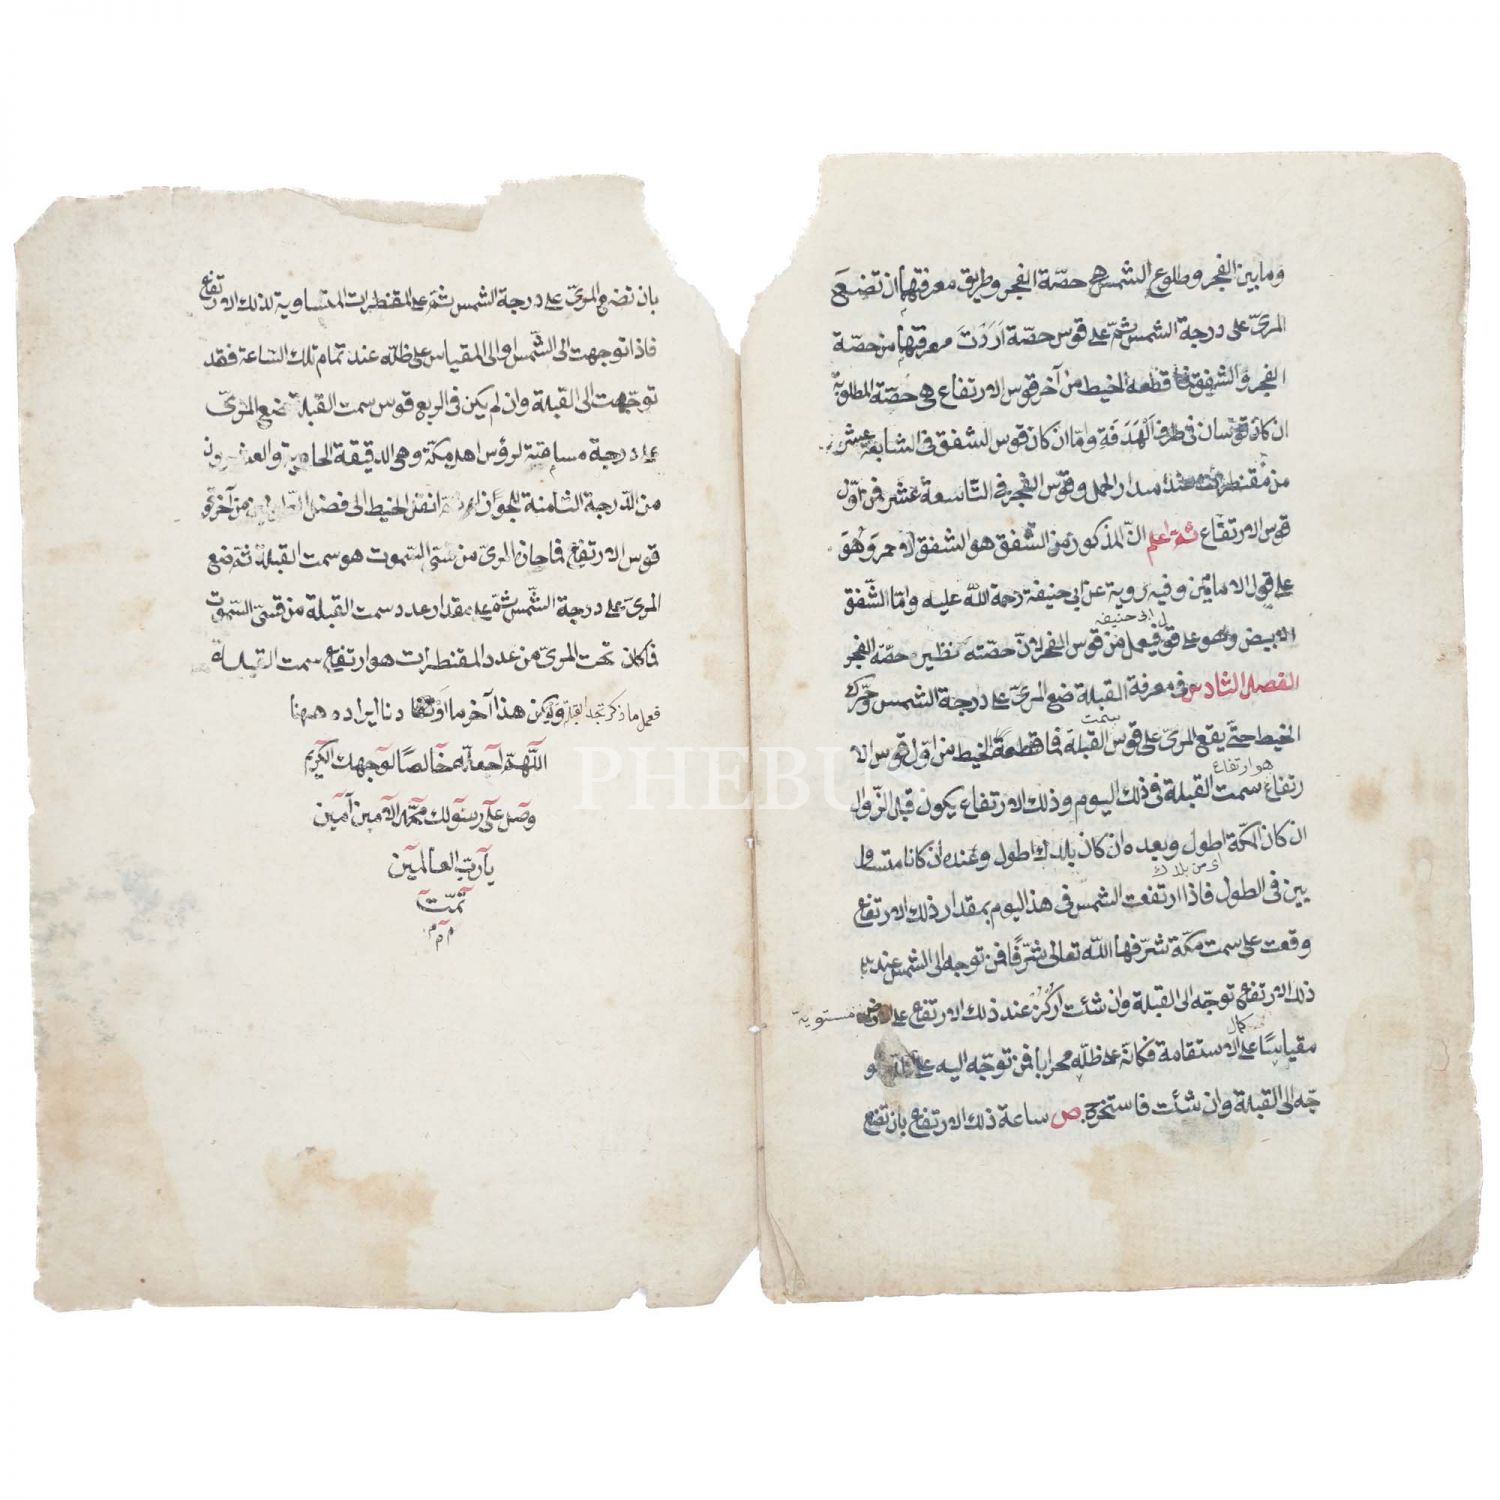 وما بين الفجر وطلوع الشمس هي حصّة الفجر وطريق معرفتها ان تضع
المريّ على درجة الشمس ثمّ على قوس حصّة اَرَدْتَ معرفتها من حصّة
الفجر والشفق فما قطعه الخيط من آخر قوس الارتفاع هي حصّة المطلوبة
ان كان قوسان في طرف الهَدَفَةِ وامّا ان كان قوس الشفق في السابعة عشر
من مُقنطرات عند مدار الحمل وقوس الفجر في التاسعة عشر فمن اوّل
قوس الارتفاع ثمّ اعلم انّ المذكور من الشفق هو الشفق الاحمر وهو
على قول الامامَين وفيه رواية عن ابي حنيفة رحمة الله عليه وامّا الشفق
الابيض وهو على قول ابي حنيفه فيعمل من قوس الفجر لانّ حصّته نظير حصّة الفجر
الفصل السادس في معرفة القبلة ضع المريّ على درجة الشمس وحَرِّك
الخيط حتّى يقع المريّ على قوس سمت القبلة فما قطعهُ الخيط من اوّل قوس الا
رتفاع هو ارتفاع سمت القبلة في ذلك اليوم وذلك الارتفاع يكون قبل الزوال
ان كان المكّة اطول وبعده ان كان بلدك اطول وعنده ان كانا متساو
اى من بلدك
يين في الطول فاذا ارتفعت الشمس في هذا اليوم بمقدار ذلك الارتفاع
وقعت على سمت مكّة شرّفها الله تعالى شرّفًا فمن توجه الى الشمس عند
ذلك الارتفاع توجّه الى القبلة وان شئت اركز عند ذلك الارتفاع على ارض مستوية
مقياسًا على كمال الاستقامة فكانّ على ظلّه محرابا فمن توجّه اليه على ظلّه تو
جّه الى القبلة وان شئت فاستخرج ص ساعة ذلك الارتفاع بان تضع
بان تضع المريّ على درجة الشمس ثمّ على المقنطرات المتساوية لذلك الارتفاع
فاذا توجهت الى الشمس او الى المقياس على ظلّه عند تمام تلك الساعة فقد
توجّهت الى القبلة وان لم يكن في الربع قوس سمت القبلة تضع المريّ
على درجة مسامتة لرؤس اهل مكّة وهي الدقيقة الحادية والعشرون
من الدرجة الثامنة للجوزا انقل الخيط الى فضل الطولين من آخر
قوس الارتفاع فما حاز المريّ من قسي السّموت هو سمت القبلة ثمّ ضع
المريّ على درجة الشّمس ثمّ على مقدار عدد سمت القبلة من قسيّ السّموت
فما كان تحت المريّ من عدد المقنطرات هو ارتفاع سمت القبلة
فعمل ما ذكر تجد القبلة وليكن هذا آخر ما اوَردنا ايراده ههنا
اللّهمّ اجعله خالصًا لوجهك الكريم
وصل على رسولك محمّد الامين آمين
يا ربّ العالمين
تمّت
م م م
PHEBUS